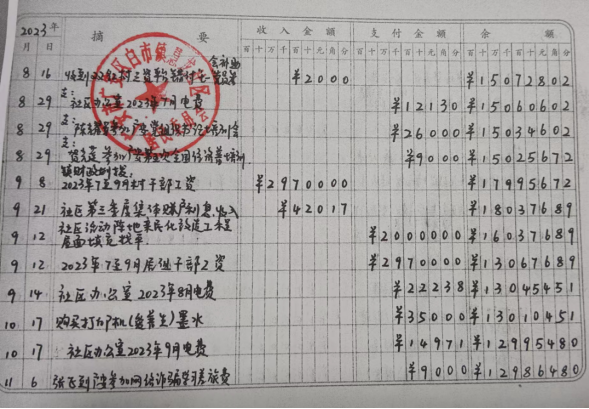 2023年 摘 要 收入金额 支付金额 余 额
月 日 百 十 万 千 百 十 元 角 分 百 十 万 千 百 十 元 角 分 百 十 万 千 百 十 元 角 分
8 16 收到 ¥2000 ¥15072802
8 29 支: 社区办公室2023年7月电费 ¥12130 ¥15060602
8 29 支: ¥26000 ¥15034602
8 29 支: 培训 ¥9000 ¥15025672
镇财政划拨:
9 8 2023年7至9月村干部工资 ¥2970000 ¥17995672
9 21 社区第三季度集体账户利息收入 ¥42017 ¥18037689
社区活动阵地亲民化改造工程
9 12 屋面填充找平. ¥2000000 ¥16037689
9 12 2023年7至9月居组干部工资 ¥2970000 ¥13067689
9 14 社区办公室2023年8月电费 ¥22238 ¥13045451
10 17 购买打印机墨水 ¥35000 ¥13010451
10 17 社区办公室2023年9月电费 ¥14971 ¥12995480
11 6 参加网络诈骗学习差旅费 ¥9000 ¥12986480